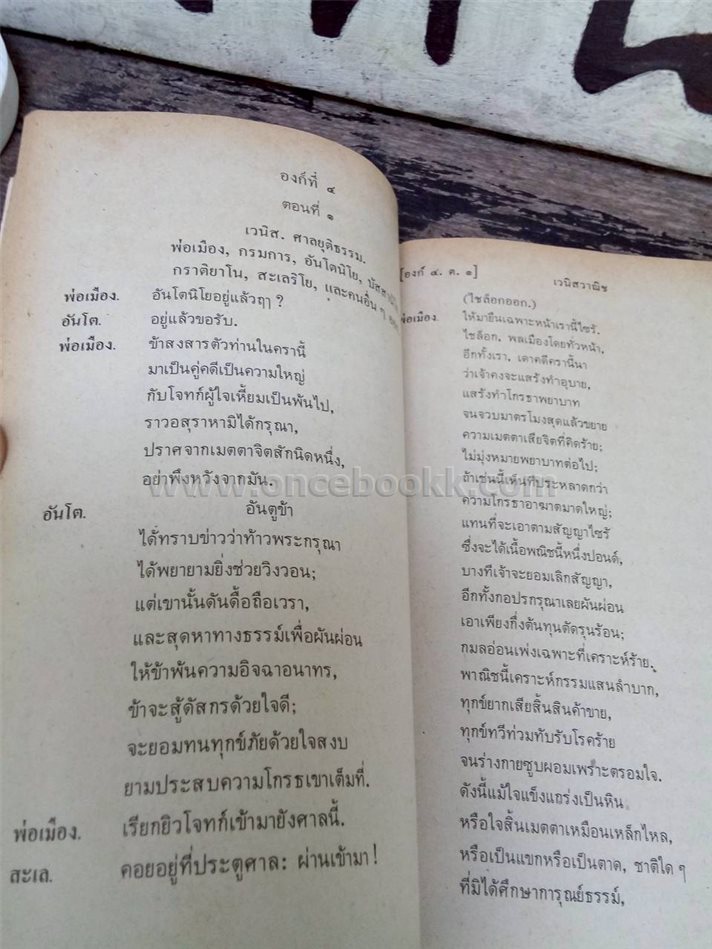 องก์ที่ ๔
ตอนที่ ๑
เวนิส. ศาลยุติธรรม.
พ่อเมือง, กรมการ, อันโตนิโย, บัสสานิ
กราติยาโน, สะเลริโย, และคนอื่น ๆ
พ่อเมือง. อันโตนิโยอยู่แล้วฤๅ ?
อันโต. อยู่แล้วขอรับ.
พ่อเมือง. ข้าสงสารตัวท่านในครานี้
มาเป็นคู่คดีเป็นความใหญ่
กับโจทก์ผู้ใจเหี้ยมเป็นพ้นไป,
ราวอสุราหามิได้กรุณา,
ปราศจากเมตตาจิตสักนิดหนึ่ง,
อย่าพึงหวังจากมัน.
อันโต. อันตูข้า
ได้ทราบข่าวว่าท้าวพระกรุณา
ได้พยายามยิ่งช่วยวิงวอน;
แต่เขานั้นดันดื้อถือเวรา,
และสุดหาทางธรรม์เพื่อผันผ่อน
ให้ข้าพ้นความอิจฉาอนาทร,
ข้าจะสู้ดัสกรด้วยใจดี;
จะยอมทนทุกข์ภัยด้วยใจสงบ
ยามประสบความโกรธเขาเต็มที่.
พ่อเมือง. เรียกยิวโจทก์เข้ามายังศาลนี้.
สะเล. คอยอยู่ที่ประตูศาล: ผ่านเข้ามา !
[องก์ ๔. ต. ๑] เวนิสวาณิช
(ไชล็อกออก.)
พ่อเมือง. ให้มายืนเฉพาะหน้าเรานี้ไซร้.
ไชล็อก, พลเมืองโดยทั่วหน้า,
อีกทั้งเรา, เดาคดีครานี้นา
ว่าเจ้าคงจะแสร้งทำอุบาย,
แสร้งทำโกรธาพยาบาท
จนจวบมาตรโมงสุดแล้วขยาย
ความเมตตาเสียจิตที่คิดร้าย;
ไม่มุ่งหมายพยาบาทต่อไป;
ถ้าเช่นนี้เห็นที่ประหลาดกว่า
ความโกรธาอาฆาตมาดใหญ่;
แทนที่จะเอาตามสัญญาไซร้
ซึ่งจะได้เนื้อพณิชนี้หนึ่งปอนด์,
บางทีเจ้าจะยอมเลิกสัญญา,
อีกทั้งกอปรกรุณาเลยผันผ่อน
เอาเพียงกึ่งต้นทุนตัดรุนร้อน;
กมลอ่อนเพ่งเฉพาะที่เคราะห์ร้าย.
พาณิชนี้เคราะห์กรรมแสนลำบาก,
ทุกข์ยากเสียสิ้นสินค้าขาย,
ทุกข์ทวีท่วมทับรับโรคร้าย
จนร่างกายซูบผอมเพราะตรอมใจ.
ดังนี้แม้ใจแข็งแกร่งเป็นหิน
หรือใจสิ้นเมตตาเหมือนเหล็กไหล,
หรือเป็นแขกหรือเป็นตาด, ชาติใด ๆ
ที่มิได้ศึกษาการุณย์ธรรม์,
www.oncebookk.com